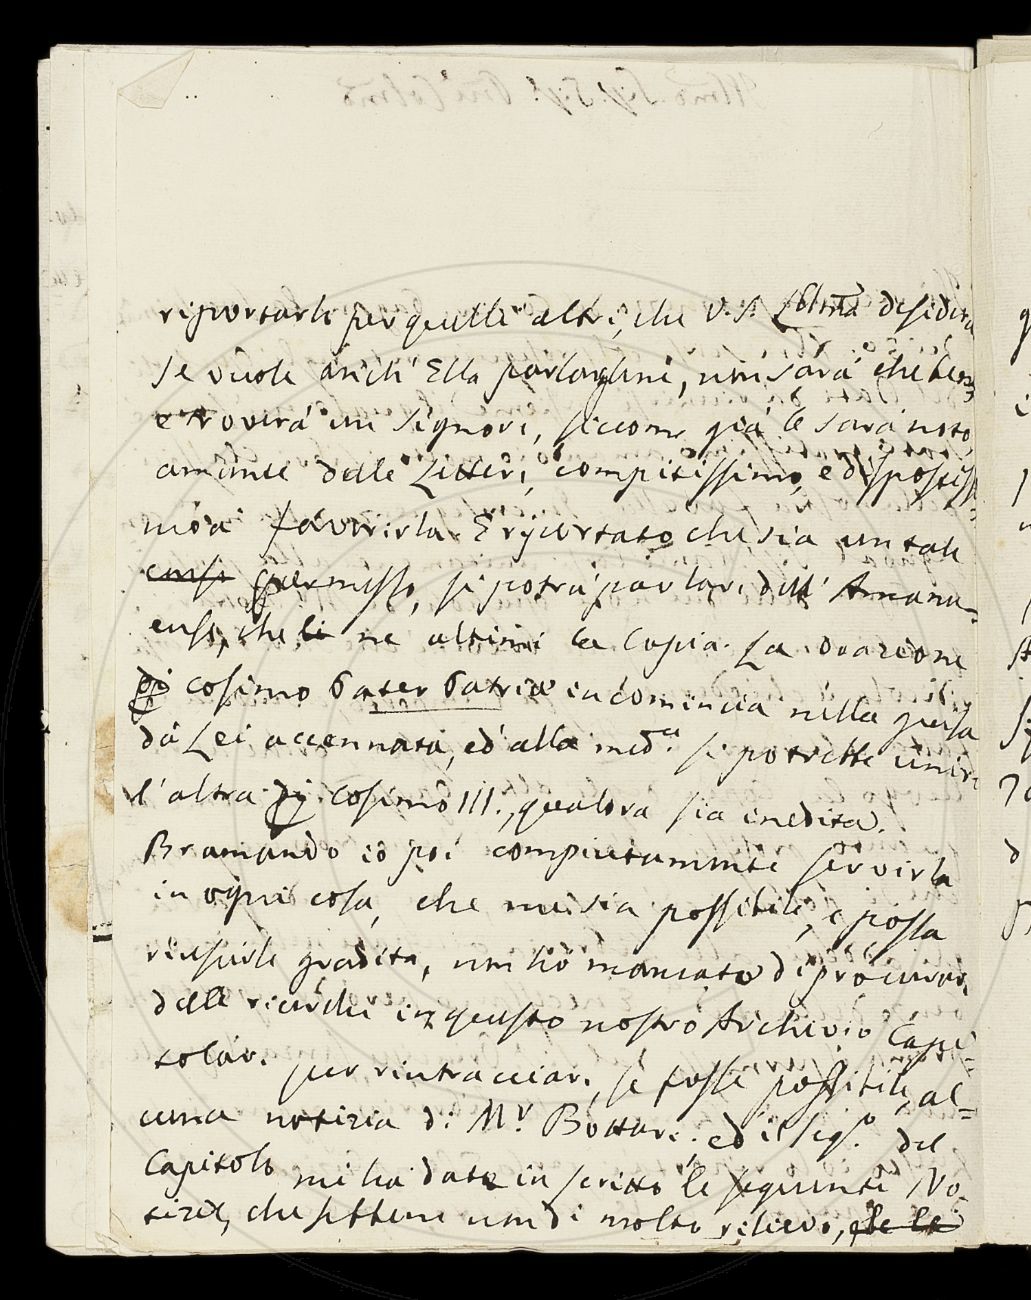 riportarle per quelle altri, che V. S. Illmā desidera
se vuole anch' Ella parlargline, non sarà che bene,
e troverà un Signore, siccome già le sarà noto,
amante delle Lettere, compitissimo, e dispostiss-
mo a' favorirla. E riportato che sia un tale
permesso, si potrà parlare dell' Amanu-
ense, che ne ultimi la Copia. La Orazione
di Cosimo Pater Patriæ incomincia nella guisa
da Lei accennata, ed' alla med.ª si potrebbe unire
l' altra di Cosimo III., qualora sia inedita.
Bramando io poi compiutamente servirla
in ogni cosa, che mi sia possibile, e possa
riuscirle gradita, non hò mancato di procurare
delle ricerche in questo nostro Archivio Capi-
tolare per rintracciare, se fosse possibile, al=
cuna notizia di M.r Bottari; ed il Seg.º del
Capitolo mi ha date in scritto le seguenti No-
tizie, che sebbene non di molto rilievo, che le